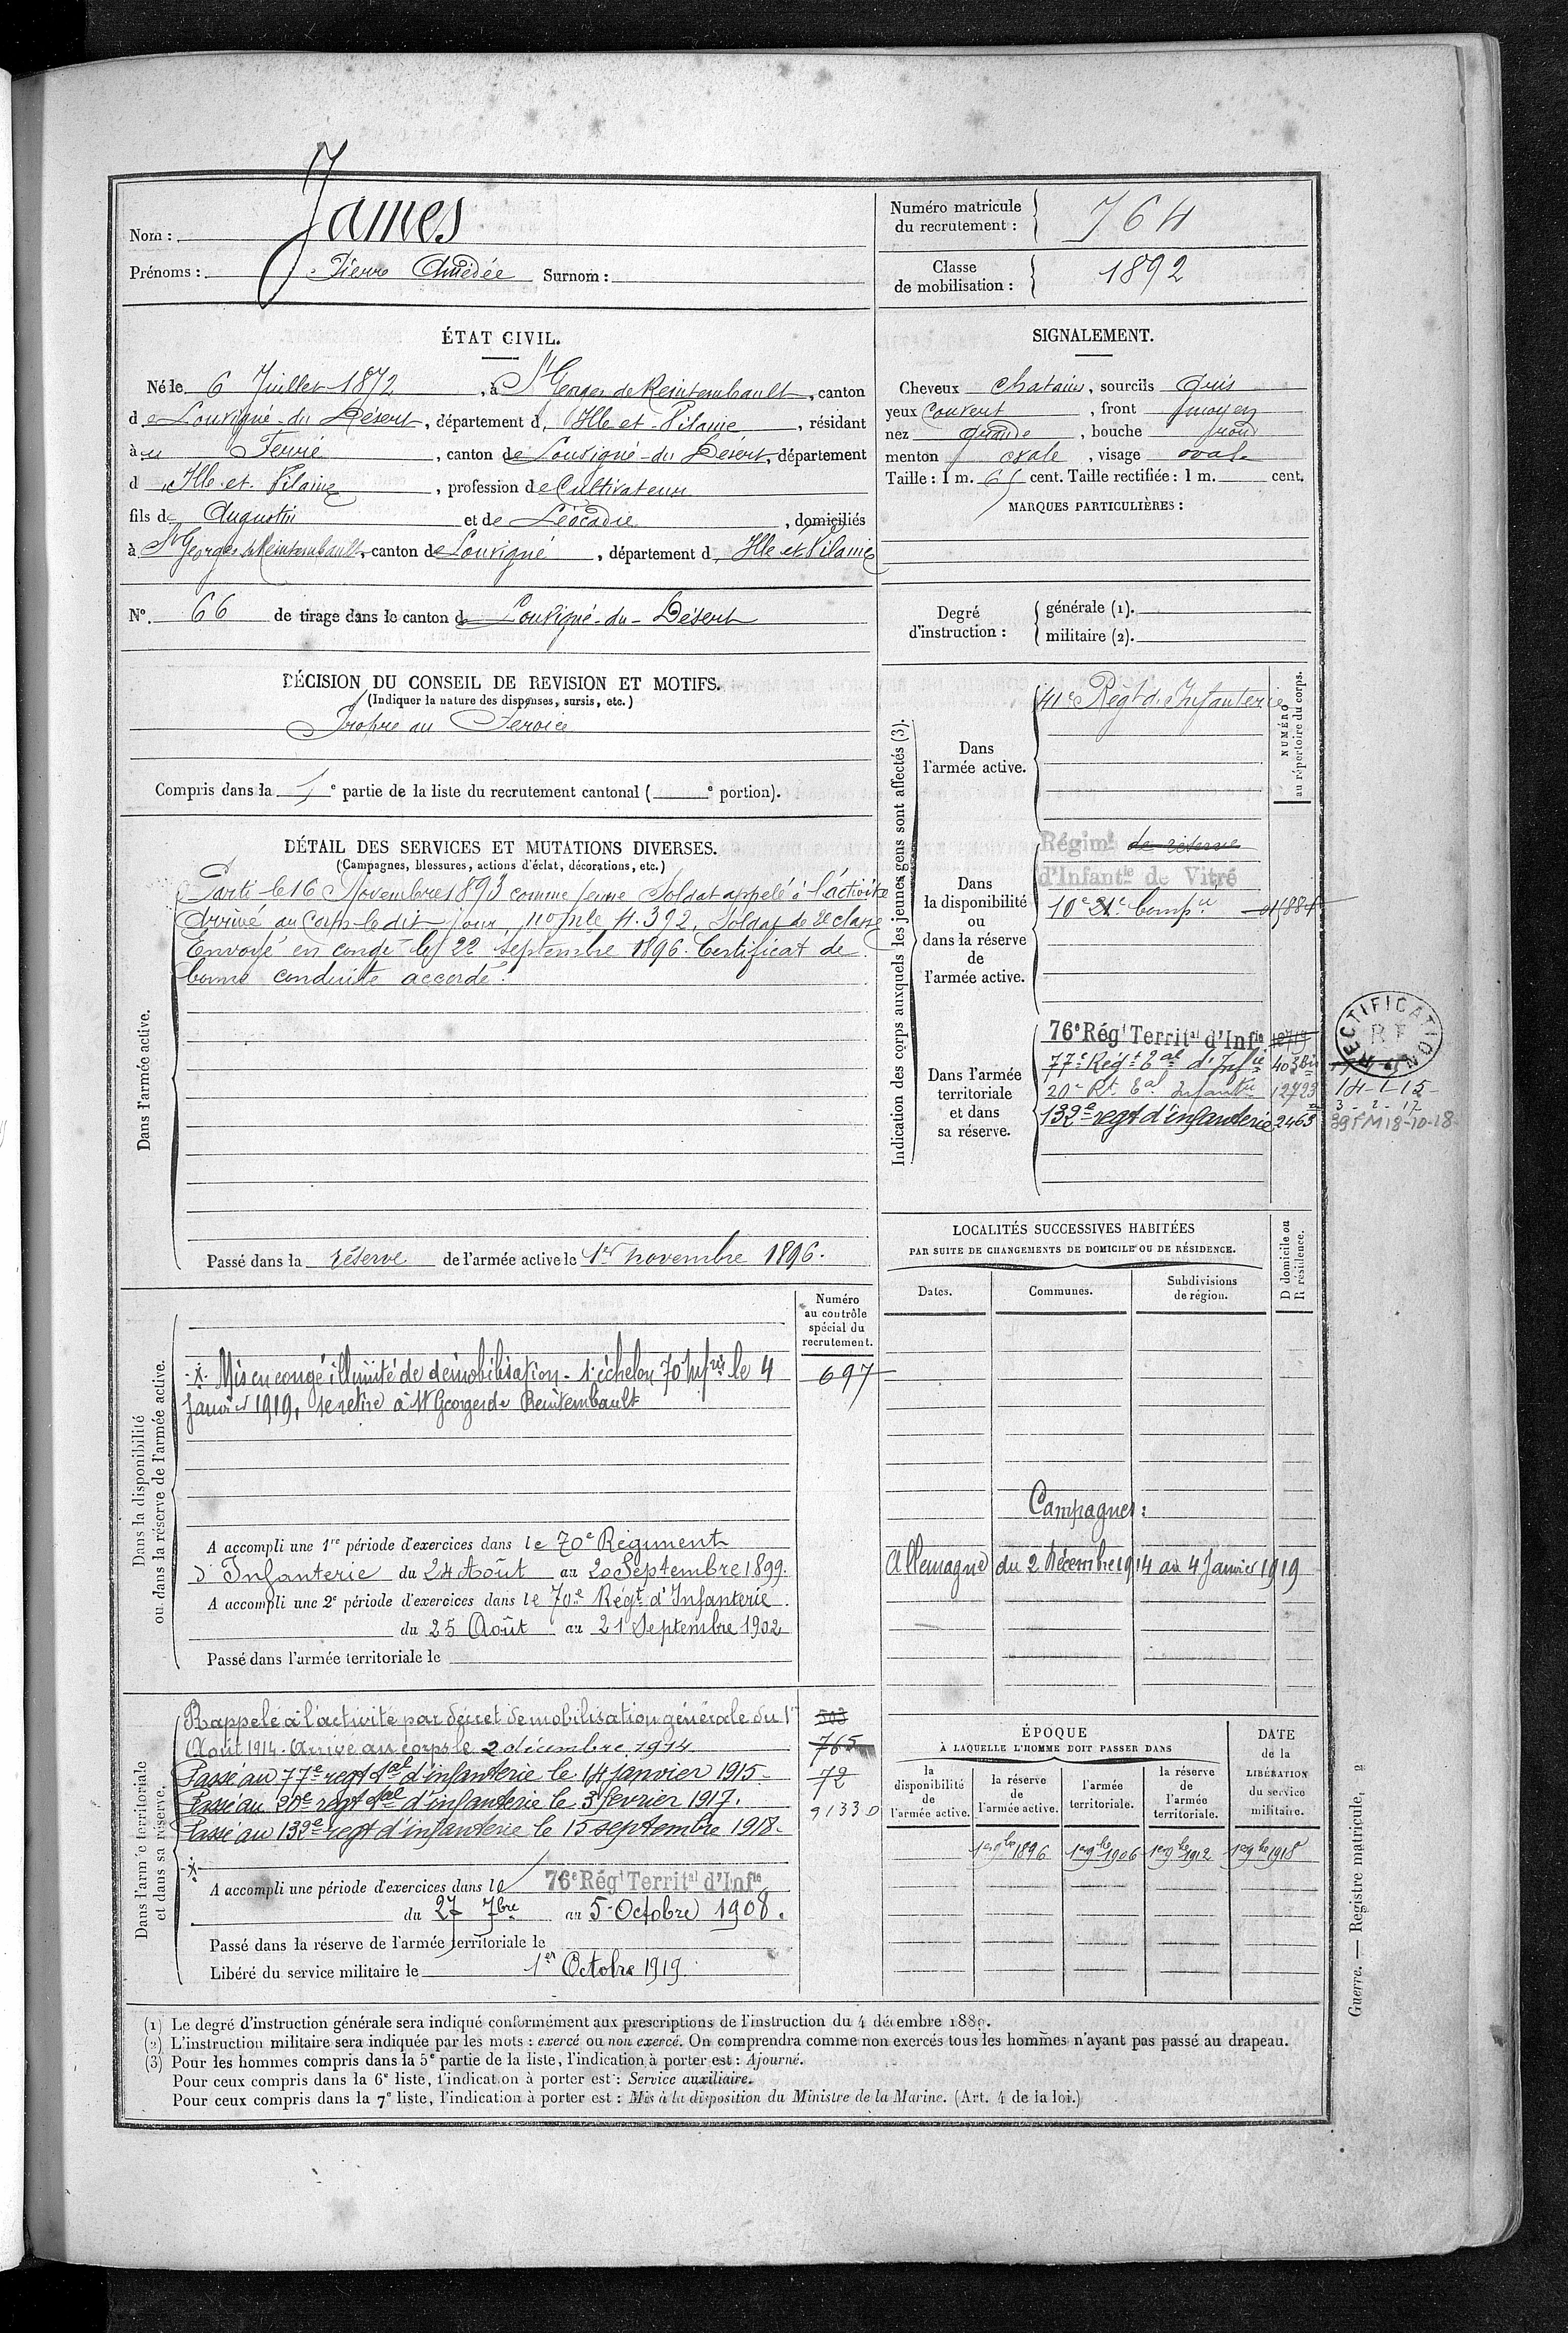 Nom : James
Prénoms : Pierre Amédée Surnom :
Numéro matricule du recrutement : 764
Classe de mobilisation : 1892
ÉTAT CIVIL.
Né le 6 Juillet 1872, à St Georges de Reintembault, canton
de Louvigné-du-Désert, département d'Ille et Vilaine, résidant
à Ferré, canton de Louvigné-du-Désert, département
d'Ille et Vilaine, profession de Cultivateur
fils de Augustin et de Léocadie, domiciliés
à St Georges de Reintembault, canton de Louvigné, département d'Ille et Vilaine
N° 66 de tirage dans le canton de Louvigné-du-Désert
SIGNALEMENT.
Cheveux chatains, sourcils
yeux , front moyen
nez , bouche
menton , visage ovale
Taille : 1 m. cent. Taille rectifiée : 1 m. cent.
MARQUES PARTICULIÈRES :
Degré d'instruction : générale (1).
militaire (2).
DÉCISION DU CONSEIL DE REVISION ET MOTIFS.
(Indiquer la nature des dispenses, sursis, etc.)
Propre au Service
Compris dans la 1e partie de la liste du recrutement cantonal ( e portion).
DÉTAIL DES SERVICES ET MUTATIONS DIVERSES.
(Campagnes, blessures, actions d'éclat, décorations, etc.)
Dans l'armée active.
Parti le 16 Novembre 1893 comme jeune Soldat appelé à l'activité
Arrivé au Corps le dit jour, nº mle 4.392, Soldat de 2e classe
Envoyé en congé le 22 septembre 1896. Certificat de
bonne conduite accordé.
Passé dans la réserve de l'armée active le 1er novembre 1896.
Indication des corps auxquels les jeunes gens sont affectés (3).
NUMÉRO au répertoire du corps.
Dans l'armée active.
41e Régt d'Infanterie
Dans la disponibilité ou dans la réserve de l'armée active.
Régimt de réserve
d'Infantie de Vitré
Dans l'armée territoriale et dans sa réserve.
76e Régt Territal d'Infie
77e Régt Tal d'Infie 403 bis
20e Rt Tal Infantie 12723
132e regt d'infanterie 2463
RECTIFICATION
RF
14-1-15
3-2-17
18-10-18
LOCALITÉS SUCCESSIVES HABITÉES
PAR SUITE DE CHANGEMENTS DE DOMICILE OU DE RÉSIDENCE.
Dates. Communes. Subdivisions de région. D domicile ou R résidence.
Campagnes :
Allemagne du 2 décembre 1914 au 4 Janvier 1919
Dans la disponibilité ou dans la réserve de l'armée active.
Numéro au contrôle spécial du recrutement.
697
Mis en congé illimité de démobilisation - 1er échelon 70 Infrie le 4
Janvier 1919, se retire à St Georges de Reintembault
A accompli une 1re période d'exercices dans le 70e Régiment
d'Infanterie du 24 Août au 20 Septembre 1899.
A accompli une 2e période d'exercices dans le 70e Régt d'Infanterie.
du 25 Août au 21 Septembre 1902
Passé dans l'armée territoriale le
Dans l'armée territoriale et dans sa réserve.
Rappelé à l'activité par décret de mobilisation générale du 1er
Août 1914. Arrivé au corps le 2 décembre 1914
Passé au 77e regt tal d'infanterie le 14 janvier 1915.
Passé au 20e regt tal d'infanterie le 3 fevrier 1917.
Passé au 132e regt d'infanterie le 15 septembre 1918.
503
765
72
91330
A accompli une période d'exercices dans le 76e Régt Territal d'Infie
du 27 7bre au 5 Octobre 1908.
Passé dans la réserve de l'armée territoriale le
Libéré du service militaire le 1er Octobre 1919.
ÉPOQUE
À LAQUELLE L'HOMME DOIT PASSER DANS
la disponibilité de l'armée active. la réserve de l'armée active. l'armée territoriale. la réserve de l'armée territoriale.
DATE de la LIBÉRATION du service militaire.
1er 9bre 1896 1er 9bre 1906 1er 9bre 1912 1er 9bre 1918
(1) Le degré d'instruction générale sera indiqué conformément aux prescriptions de l'instruction du 4 décembre 1889.
(2) L'instruction militaire sera indiquée par les mots : exercé ou non exercé. On comprendra comme non exercés tous les hommes n'ayant pas passé au drapeau.
(3) Pour les hommes compris dans la 5e partie de la liste, l'indication à porter est : Ajourné.
Pour ceux compris dans la 6e liste, l'indication à porter est : Service auxiliaire.
Pour ceux compris dans la 7e liste, l'indication à porter est : Mis à la disposition du Ministre de la Marine. (Art. 4 de la loi.)
Guerre. — Registre matricule, 2